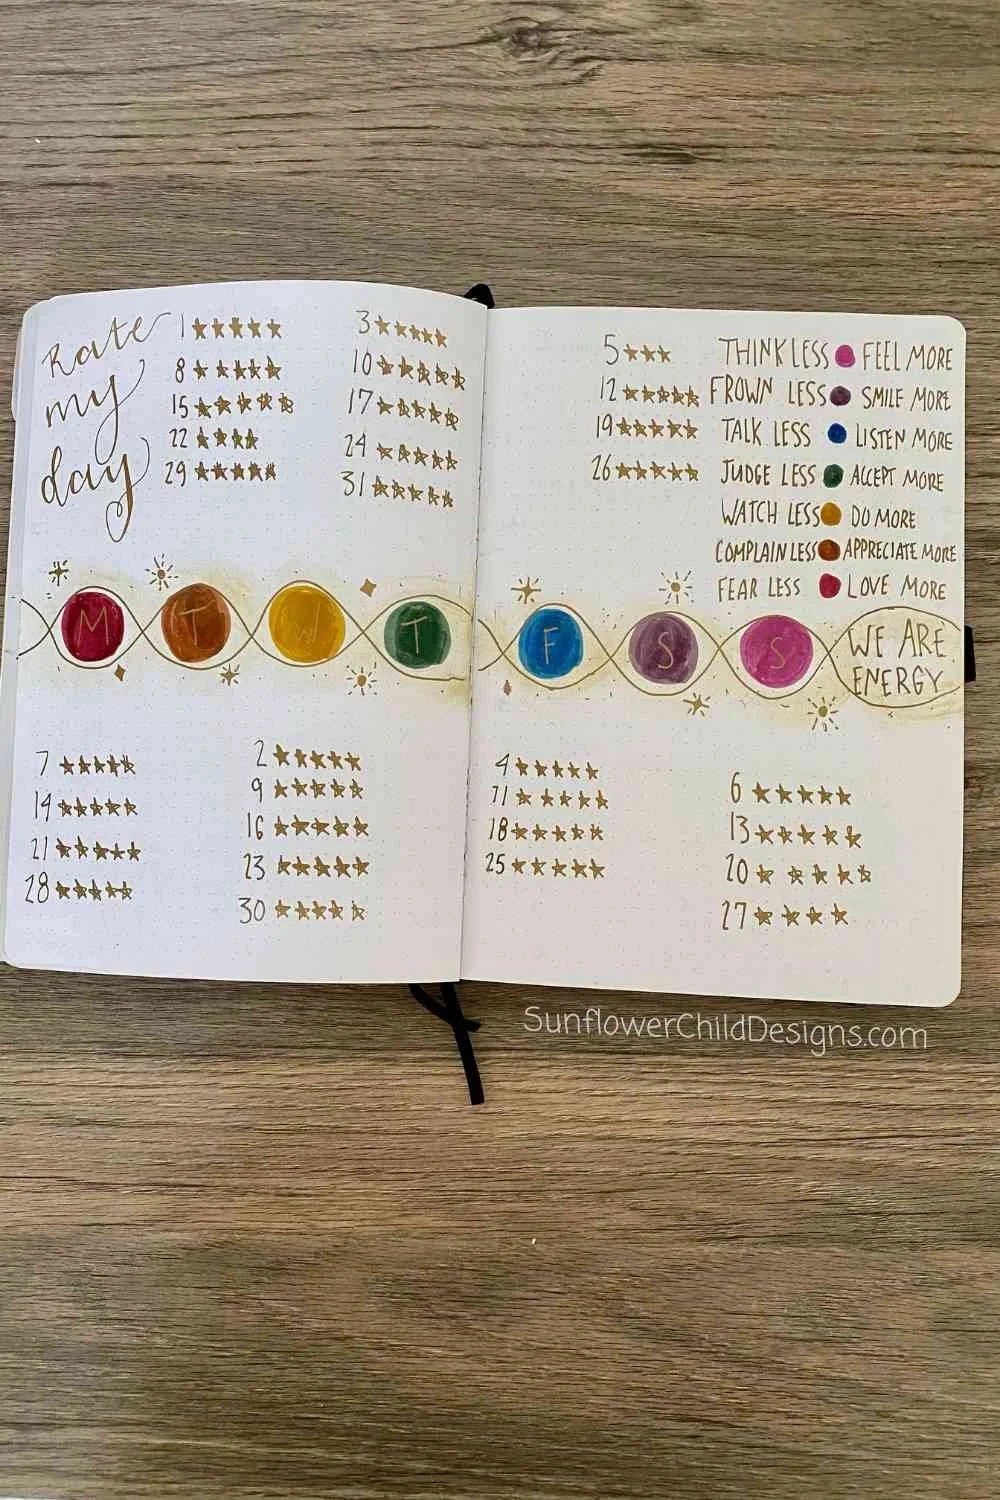 Rate
my
day
1 ★★★★★
8 ★★★★★
15 ★★★★★
22 ★★★★
29 ★★★★★
3 ★★★★★
10 ★★★★★
17 ★★★★★
24 ★★★★★
31 ★★★★★
5 ★★★
12 ★★★★★
19 ★★★★★
26 ★★★★★
THINK LESS FEEL MORE
FROWN LESS SMILE MORE
TALK LESS LISTEN MORE
JUDGE LESS ACCEPT MORE
WATCH LESS DO MORE
COMPLAIN LESS APPRECIATE MORE
FEAR LESS LOVE MORE
M T W T F S S
WE ARE
ENERGY
7 ★★★★★
14 ★★★★★
21 ★★★★★
28 ★★★★★
2 ★★★★★
9 ★★★★★
16 ★★★★★
23 ★★★★★
30 ★★★★★
4 ★★★★★
11 ★★★★★
18 ★★★★★
25 ★★★★★
6 ★★★★★
13 ★★★★★
20 ★★★★★
27 ★★★★
SunflowerChildDesigns.com